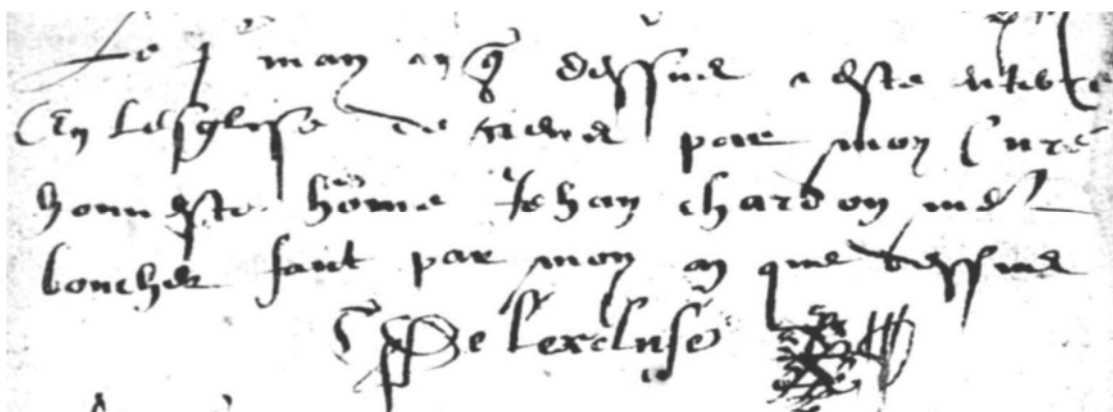 Le j may an q dessus a este enterre
En lesglise de ceans par moy Cure
honneste home Jehan chardon md
boucher faict par moy an que dessus
De lexcluse